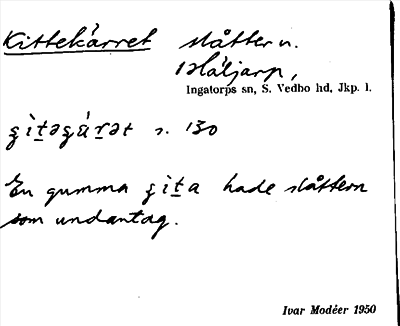 Kittekärret slåtter n.
Släljarp,
Ingatorps sn, S. Vedbo hd, Jkp. l.
s. 130
En gumma hade slåttern
som undantag.
Ivar Modéer 1950